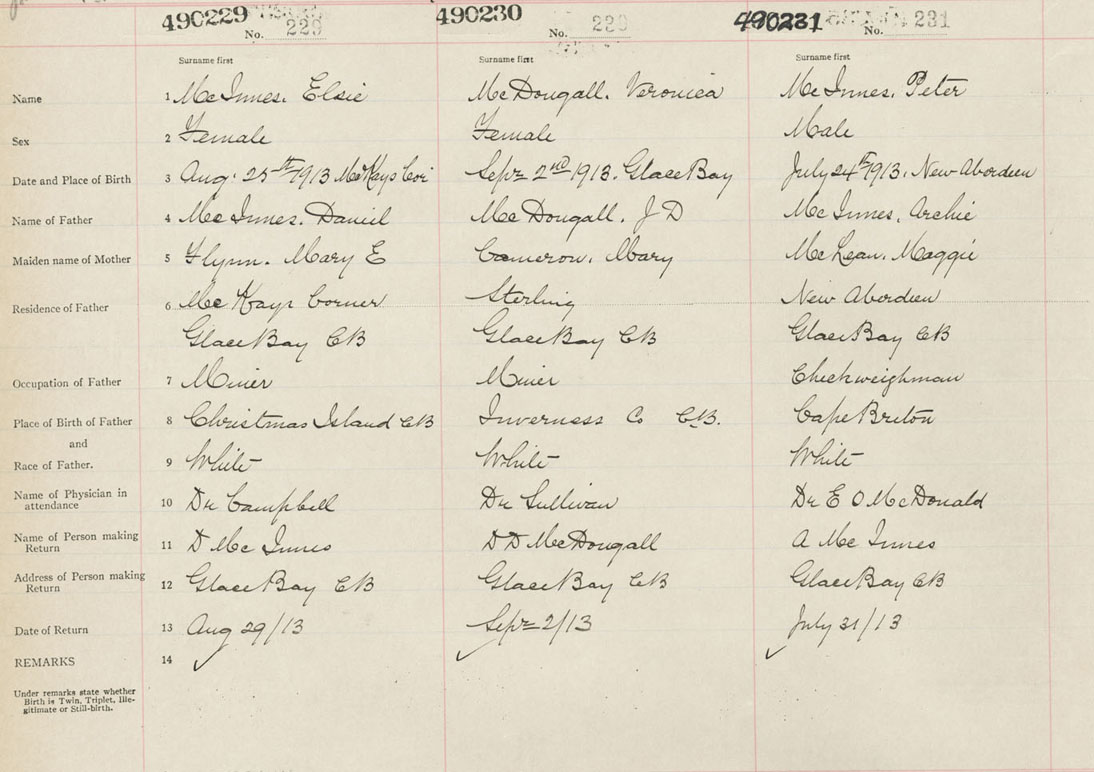 490229 No. 229 490230 No. 230 490231 No. 231
Surname first Surname first Surname first
Name 1 McInnes. Elsie McDougall. Veronica McInnes. Peter
Sex 2 Female Female Male
Date and Place of Birth 3 Aug. 25th 1913 McKays Cor Sept 2nd 1913. Glace Bay July 24th 1913. New Aberdeen
Name of Father 4 McInnes. Daniel McDougall. J D McInnes, Archie
Maiden name of Mother 5 Flynn. Mary E Cameron. Mary McLean. Maggie
Residence of Father 6 McKays Corner Sterling New Aberdeen
Glace Bay CB Glace Bay CB Glace Bay CB
Occupation of Father 7 Miner Miner Checkweighman
Place of Birth of Father 8 Christmas Island CB Inverness Co C.B. Cape Breton
and
Race of Father. 9 White White White
Name of Physician in
attendance 10 Dr Campbell Dr Sullivan Dr E O McDonald
Name of Person making
Return 11 D McInnes D D McDougall A McInnes
Address of Person making
Return 12 Glace Bay CB Glace Bay CB Glace Bay CB
Date of Return 13 Aug 29/13 Sept 2/13 July 31/13
REMARKS 14
Under remarks state whether
Birth is Twin, Triplet, Ille-
gitimate or Still-birth.